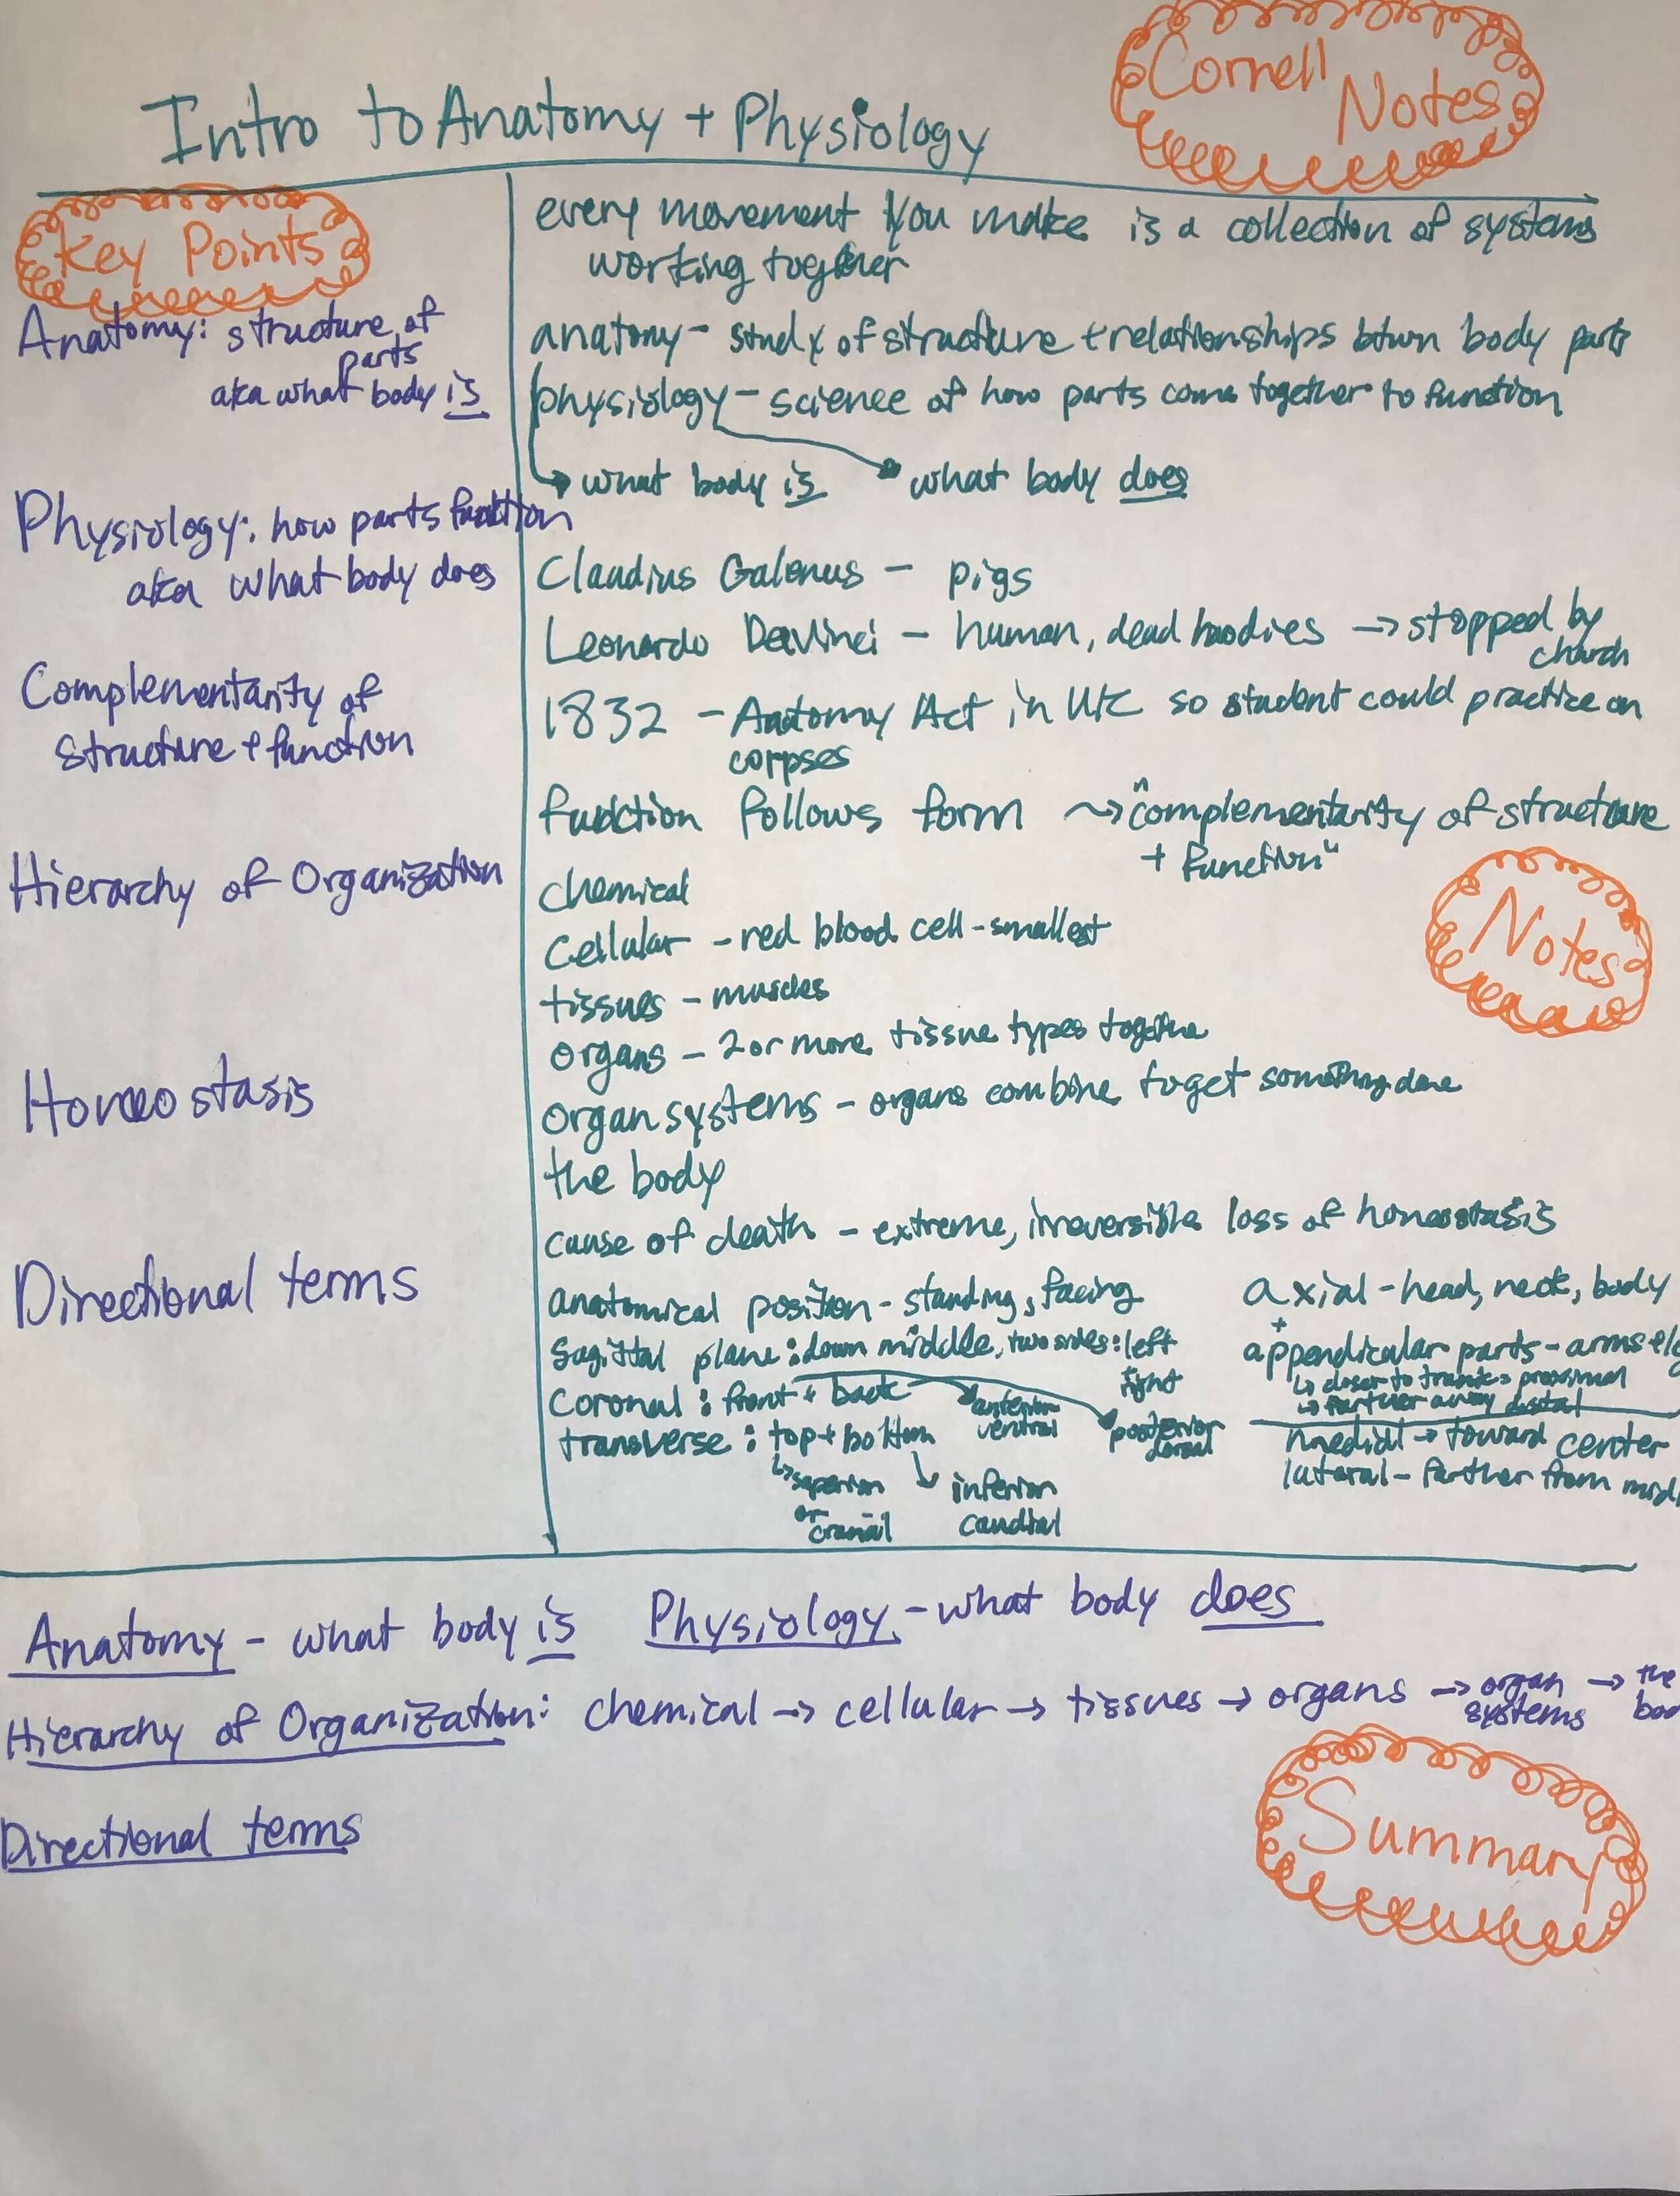 Cornell Notes
Intro to Anatomy + Physiology
Key Points
Anatomy: structure of
parts
aka what body is
Physiology: how parts function
aka what body does
Complementarity of
structure + function
Hierarchy of Organization
Homeostasis
Directional terms
every movement you make is a collection of systems
working together
anatomy - study of structure + relationships btwn body parts
physiology - science of how parts come together to function
what body is
what body does
Claudius Galenus - pigs
Leonardo DeaVinci - human, dead boodies → stopped by
church
1832 - Anatomy Act in UK so student could practice on
corpses
function follows form ~> "complementarity of structure
+ function"
Notes
chemical
Cellular - red blood cell - smallest
tissues - muscles
organs - 2 or more tissue types together
organ systems - organs combine to get something done
the body
cause of death - extreme, irreversible loss of homeostasis
anatomical position - standing, facing
Sagittal plane: down middle, two sides: left
right
Coronal: front + back
anterior
ventral
posterior
dorsal
transverse: top + bottom
superior
or
cranial
inferior
caudial
axial - head, neck, body
+
appendicular parts - arms +
↳ closer to trunk = proximal
↳ farther away distal
medial → toward center
lateral - farther from
Anatomy - what body is Physiology - what body does
Hierarchy of Organization: chemical → cellular → tissues → organs → organ systems → the
Directional terms
Summary